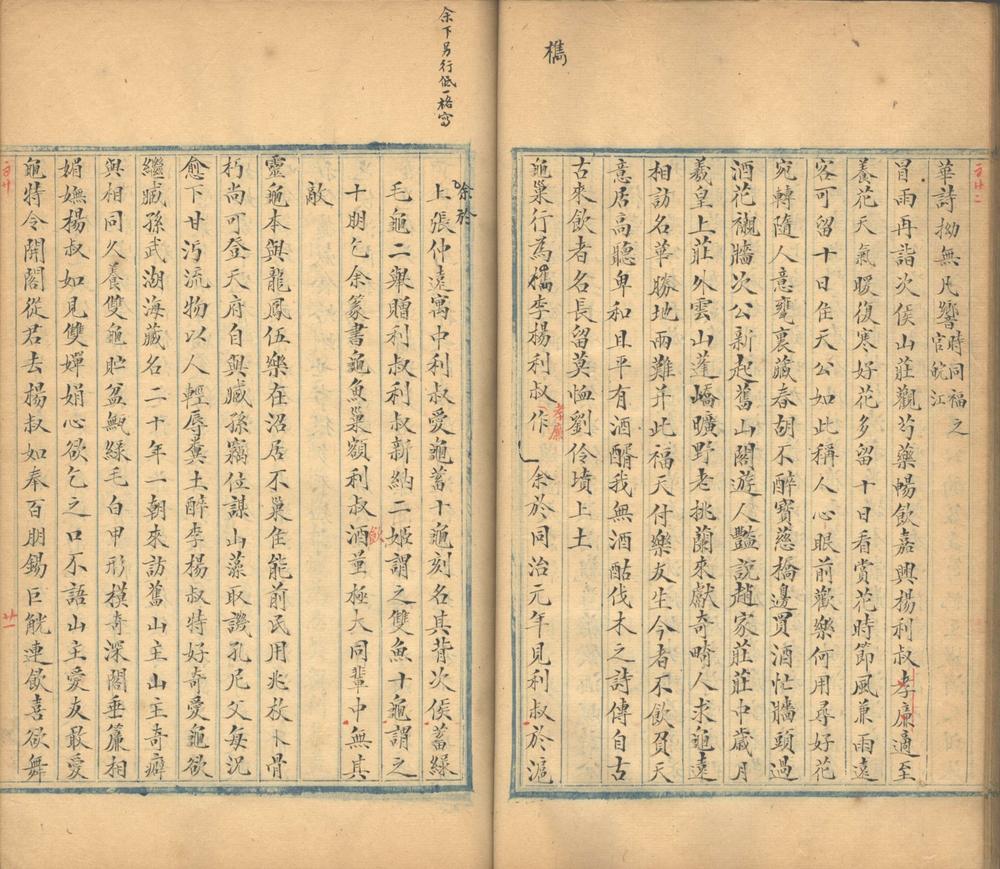 檇
華詩拗無凡響時同福之官皖江
冒雨再詣次侯山莊觀芍藥暢飲嘉興楊利叔孝廉適至
養花天氣暖復寒好花多留十日看賞花時節風兼雨遠
客可留十日住天公如此稱人心眼前歡樂何用尋好花
宛轉隨人意甕裏藏春胡不醉寶慈橋邊買酒忙牆頭過
酒花襯牆次公新起舊山閣遊人豔說趙家莊莊中歲月
羲皇上莊外雲山蓬嶠曠野老挑蘭來獻奇畸人求龜遠
相訪名華勝地兩難并此福天付樂友生今者不飲負天
意居高聽卑和且平有酒醑我無酒酤伐木之詩傳自古
古來飲者名長留莫恤劉伶墳上土
龜巢行為檇李楊利叔孝廉作 余於同治元年見利叔於滬
余下另行低一格寫
余於
上張仲遠寓中利叔愛龜蓄十龜刻名其背次侯蓄綠
毛龜二舉贈利叔利叔新納二姬謂之雙魚十龜謂之
十朋乞余篆書龜魚巢額利叔酒飲量極大同輩中無其
敵
靈龜本與龍鳳伍樂在沼居不巢住能前民用兆枚卜骨
朽尚可登天府自與臧孫竊位謀山藻取譏孔尼父每況
愈下甘污流物以人輕辱糞土醉李楊叔特好奇愛龜欲
繼臧孫武湖海藏名二十年一朝來訪舊山主山主奇癖
與相同久養雙龜貯盆甌綠毛白甲形模奇深閣垂簾相
媚嫵楊叔如見雙嬋娟心欲乞之口不語山主愛友最愛
龜特令開閣從君去楊叔如奉百朋錫巨觥連飲喜欲舞